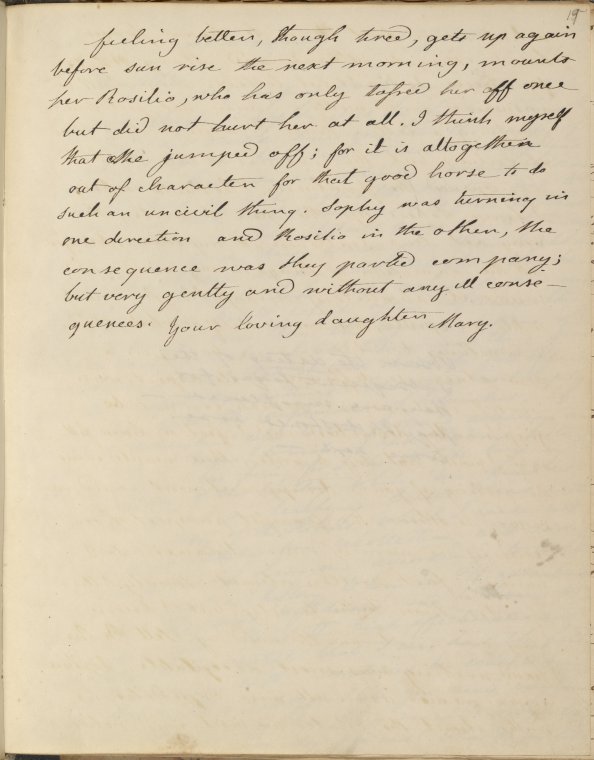 19
feeling better, though tired, gets up again
before sun rise the next morning, mounts
her Rosilio, who has only tossed her off once
but did not hurt her at all. I think myself
that she jumped off; for it is altogether
out of character for that good horse to do
such an uncivil thing. Sophy was turning in
one direction and Rosilio in the other, the
consequence was they parted company;
but very gently and without any ill conse-
quences. Your loving daughter Mary.